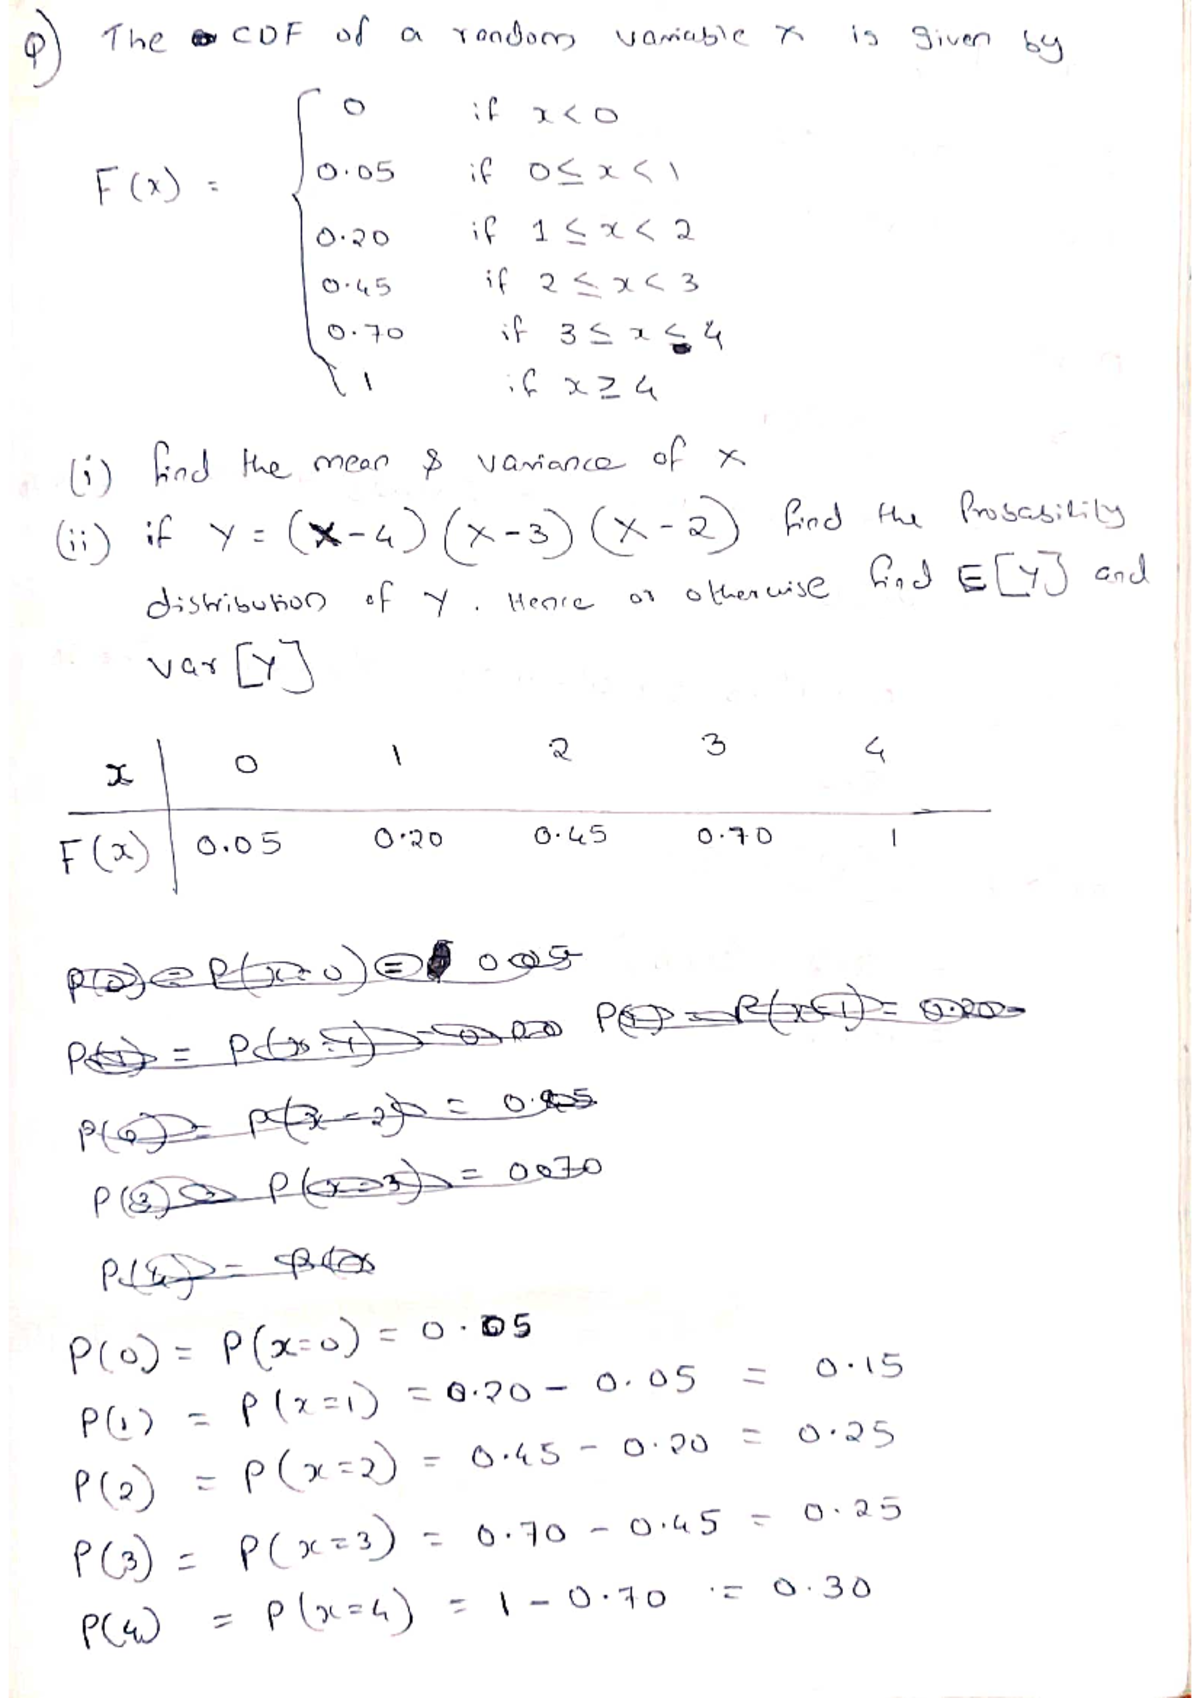 Q) The CDF of a random variable x is given by
F(x) =
0 if x<0
0.05 if 0≤x<1
0.20 if 1≤x<2
0.45 if 2≤x<3
0.70 if 3≤x≤4
1 if x≥4
(i) find the mean & variance of x
(ii) if Y = (X-4)(X-3)(X-2) find the Probability
distribution of Y. Hence or otherwise find E[Y] and
var[Y]
x 0 1 2 3 4
F(x) 0.05 0.20 0.45 0.70 1
P(0) = P(x=0) = 0.05
P(1) = P(x=1) = 0.20 - 0.05 = 0.15
P(2) = P(x=2) = 0.45 - 0.20 = 0.25
P(3) = P(x=3) = 0.70 - 0.45 = 0.25
P(4) = P(x=4) = 1 - 0.70 = 0.30